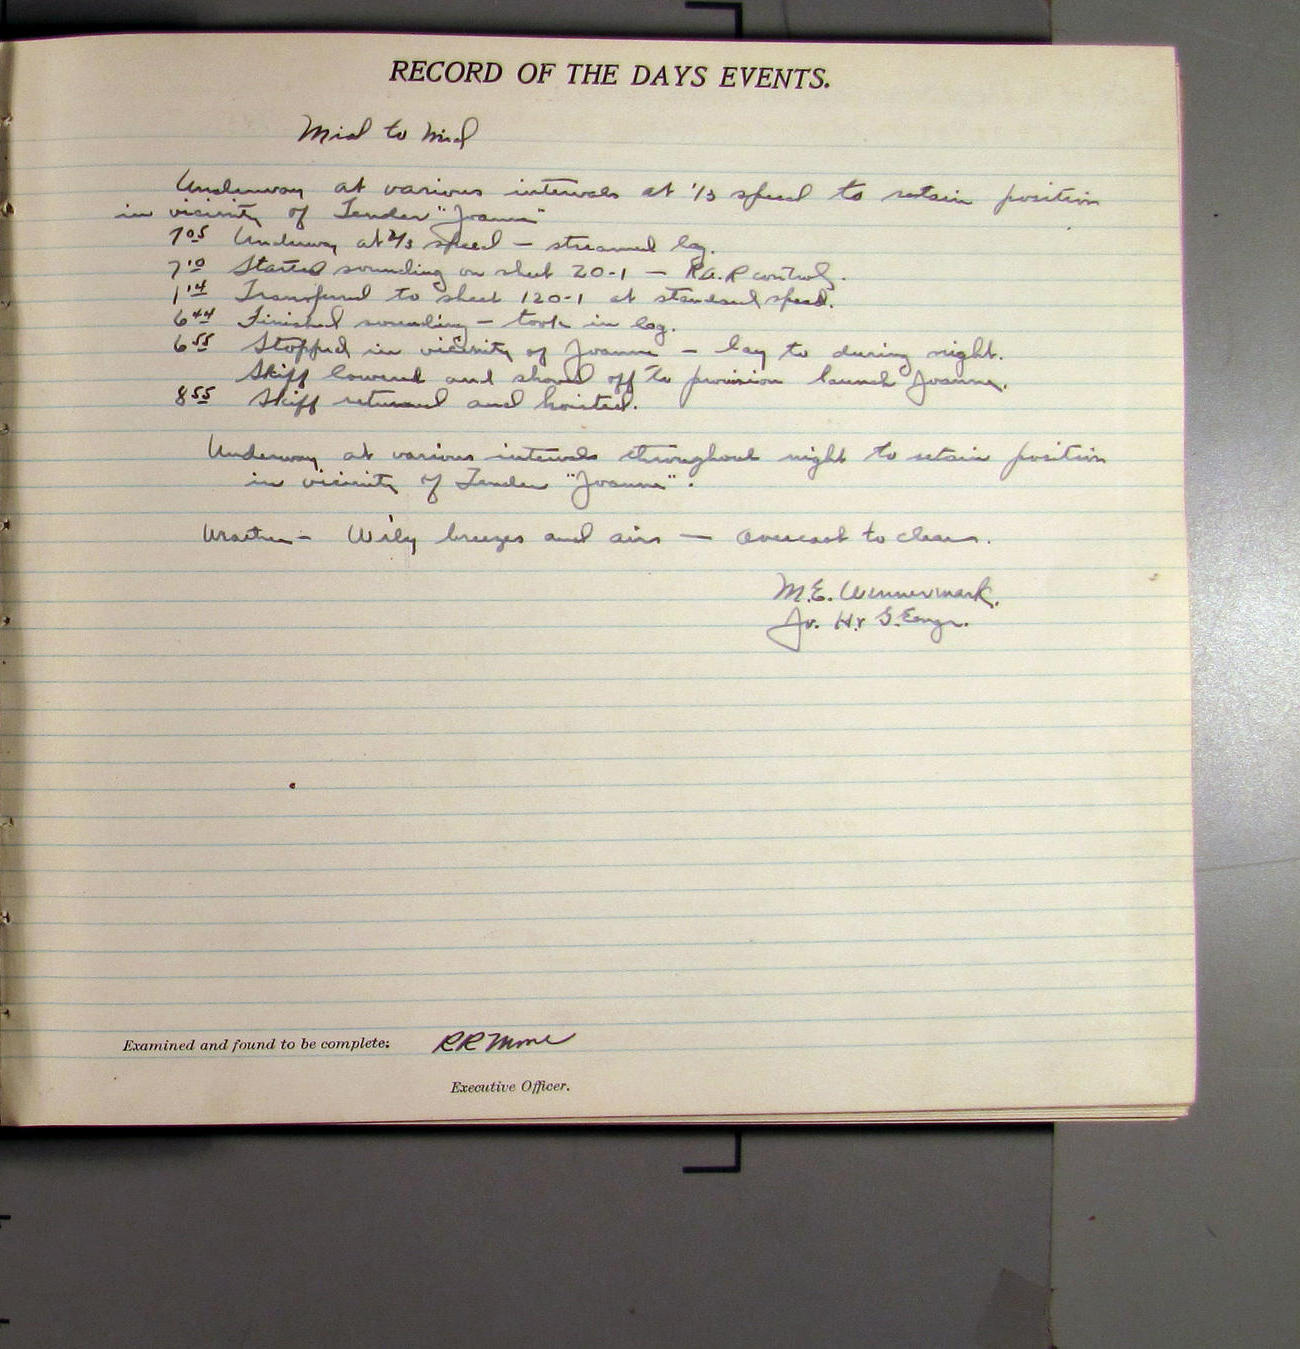 RECORD OF THE DAYS EVENTS.
Mid to Mid
Underway at various intervals at 1/3 speed to retain position
in vicinity of Tender "Joanne"
7 05 Underway at 2/3 speed — streamed log.
7 10 Started sounding on sheet 20-1 — R.A.R control.
1 14 Transferred to sheet 120-1 at standard speed.
6 44 Finished sounding — took in log.
6 55 Stopped in vicinity of Joanne — lay to during night.
Skiff lowered and shoved off to provision launch Joanne.
8 55 Skiff returned and hoisted.
Underway at various intervals throughout night to retain position
in vicinity of Tender "Joanne".
Weather — W'ly breezes and airs — overcast to clear.
M.E. Wennermark,
Jr. H. & G. Engr.
Examined and found to be complete:
Executive Officer.